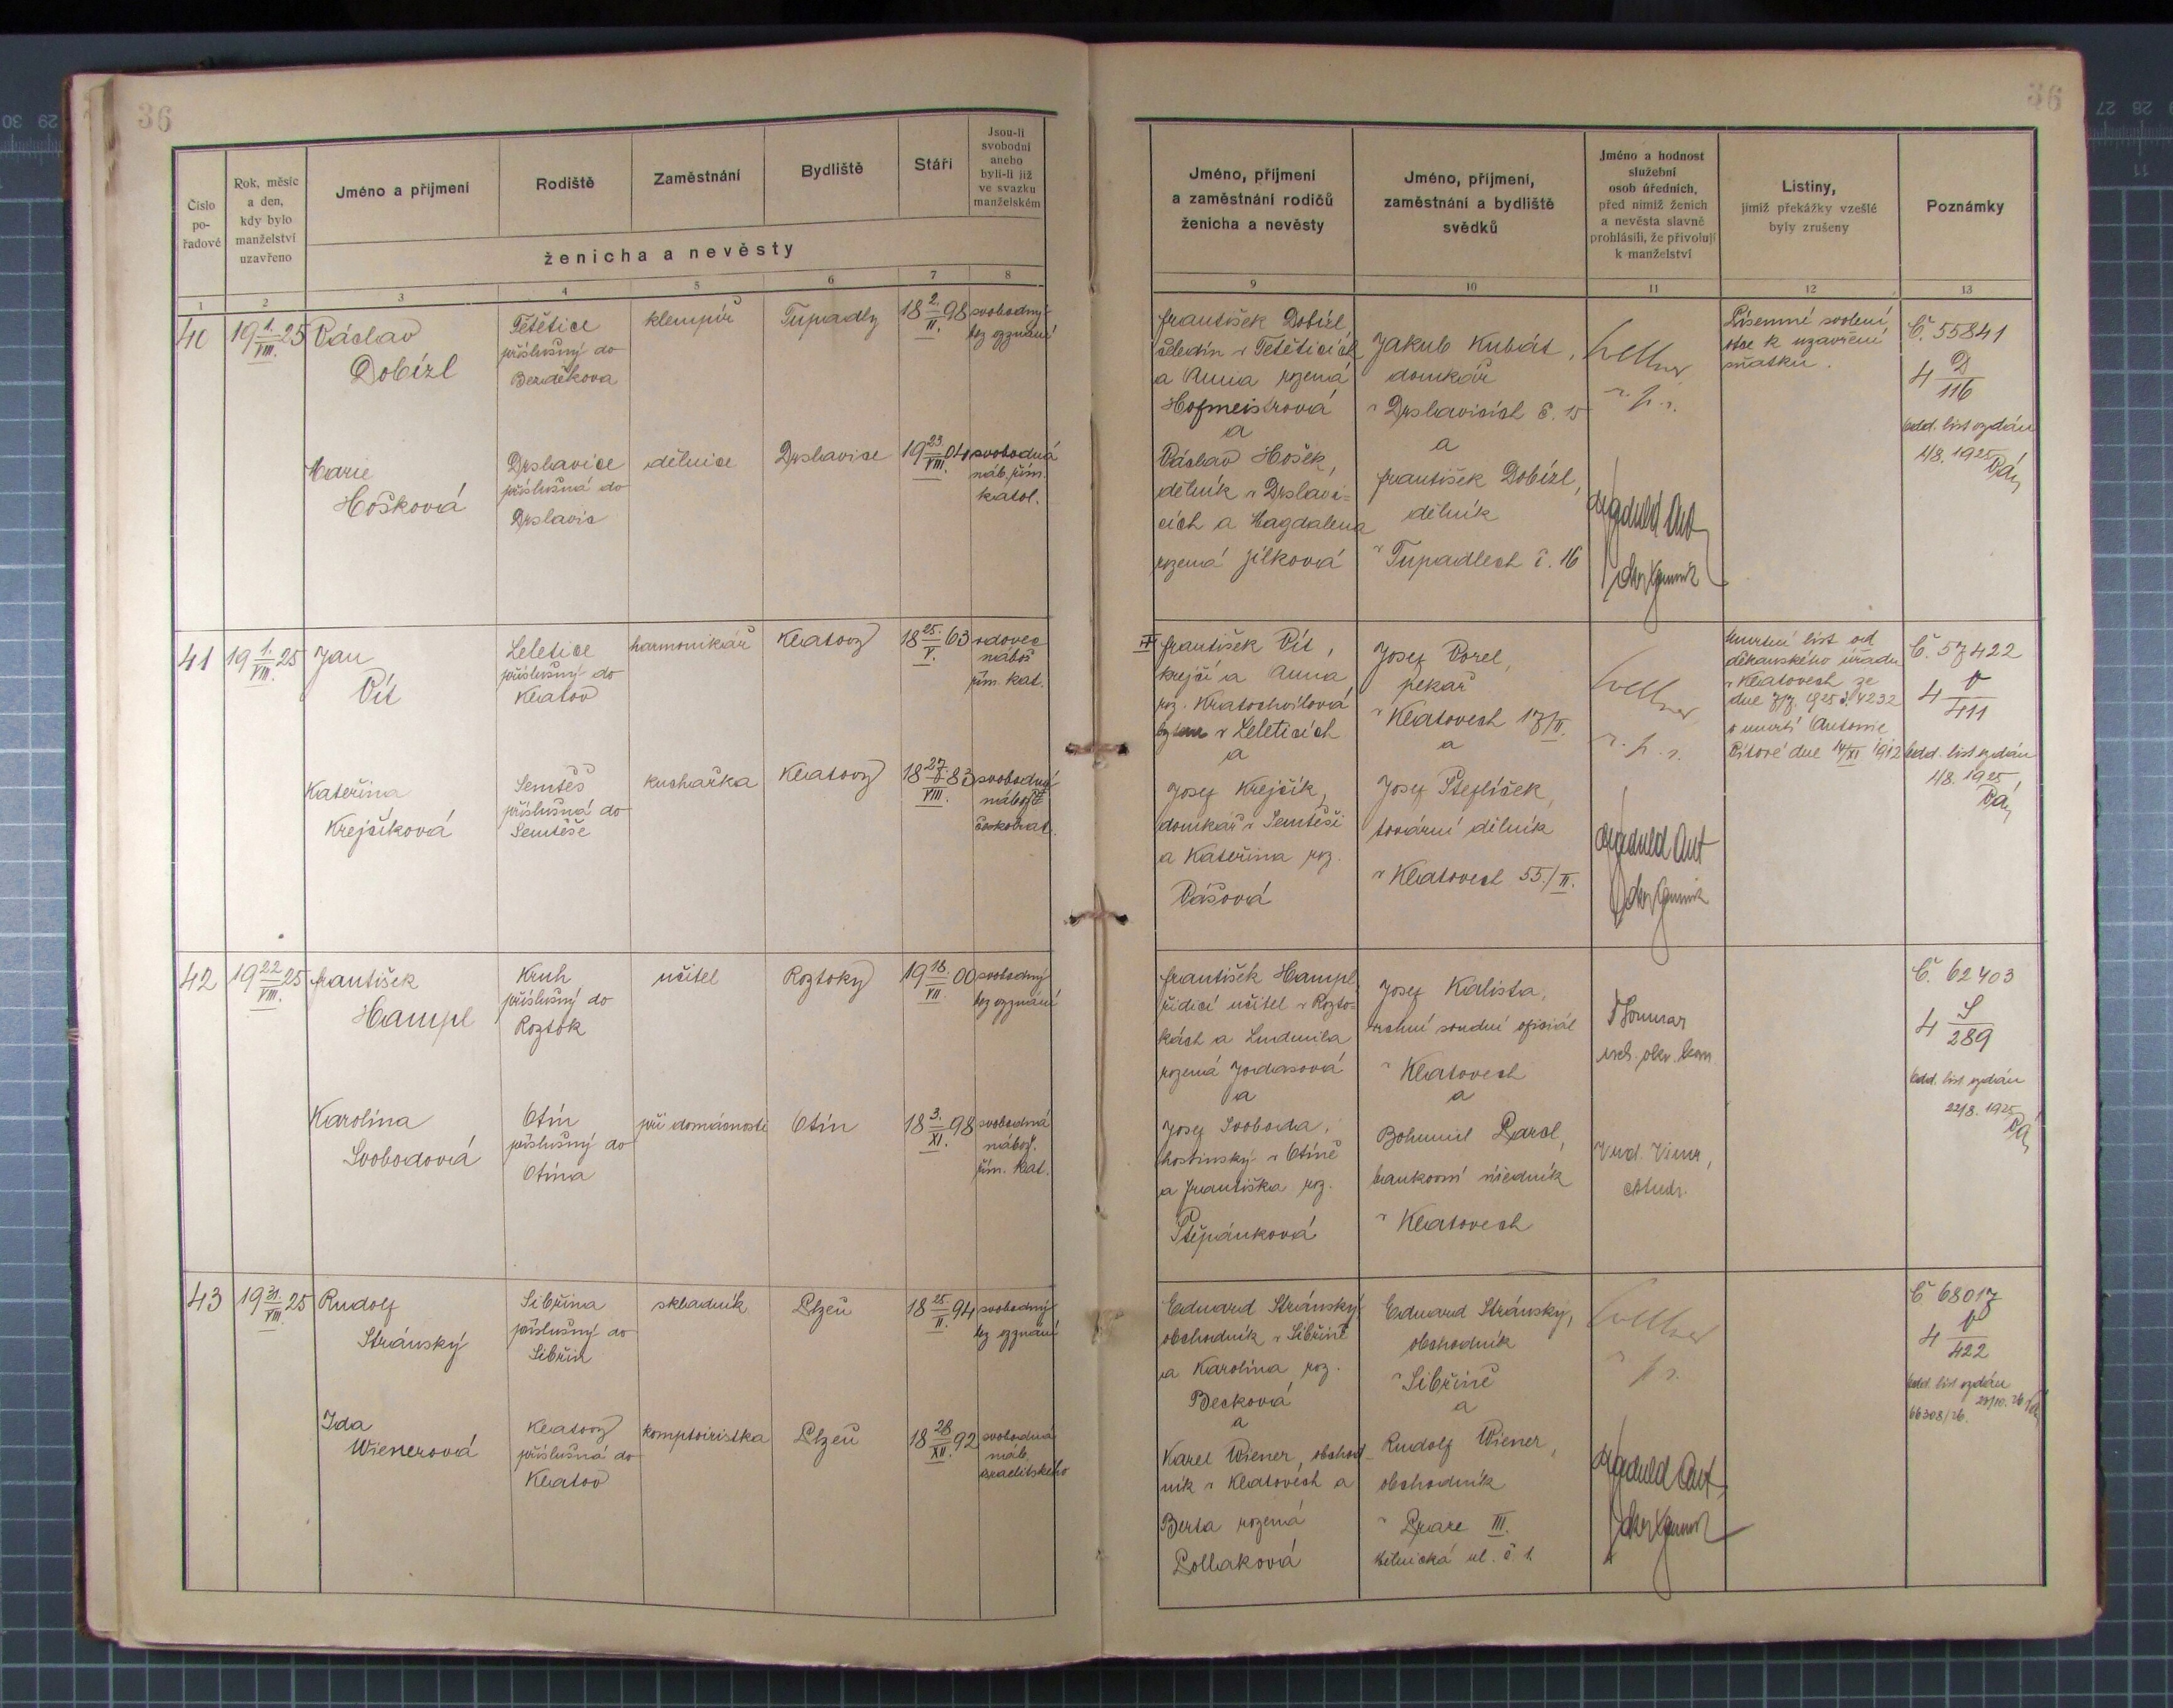 36
36
Číslo po-řadové
Rok, měsíc a den, kdy bylo manželství uzavřeno
Jméno a příjmení
Rodiště
Zaměstnání
Bydliště
Stáří
Jsou-li svobodni anebo byli-li již ve svazku manželském
ženicha a nevěsty
Jméno, příjmení a zaměstnání rodičů ženicha a nevěsty
Jméno, příjmení, zaměstnání a bydliště svědků
Jméno a hodnost služební osob úředních, před nimiž ženich a nevěsta slavně prohlásili, že přivolují k manželství
Listiny, jimiž překážky vzešlé byly zrušeny
Poznámky
1 2 3 4 5 6 7 8 9 10 11 12 13
40
19 1./VIII. 25
Václav
Dobízl
Tětětice
příslušný do
Bezděkova
klempíř
Tupadly
18 2./II. 98
svobodný
bez vyznání
Marie
Hošková
Drslavice
příslušná do
Drslavic
dělnice
Drslavice
19 23./VIII. 04
svobodná
náb. řím.
katol.
František Dobízl,
čeledín v Tětěticích
a Anna rozená
Hofmeistrová
a
Václav Hošek,
dělník v Drslavi-
cích a Magdalena
rozená Jílková
Jakub Kubát,
domkář
v Drslavicích č. 15
a
František Dobízl,
dělník
v Tupadlech č. 16
v. z. r.
Písemné svolení
otce k uzavření
sňatku.
Č. 55841
4 D/116
odd. list vydán
4/8. 1925
41
19 1./VIII. 25
Jan
Vít
Leletice
příslušný do
Klatov
harmonikář
Klatovy
18 25./V. 63
vdovec
nábož
řím. kat.
Kateřina
Krejčíková
Semtěš
příslušná do
Semtěše
kuchařka
Klatovy
18 27./VIII. 83
svobodná
nábož.
českobrat.
František Vít,
krejčí a Anna
roz. Kratochvílová
v Leleticích
a
Josef Krejčík,
domkář v Semtěši
a Kateřina roz.
Vášová
Josef Vorel,
pekař
v Klatovech 17/II.
a
Josef Šteflíček,
tovární dělník
v Klatovech 55./II.
Úmrtní list od
děkanského úřadu
v Klatovech ze
dne 7/7. 1925 č. 4232
o úmrtí Antonie
Vítové dne 14/XI 1912
Č. 57422
4 V/411
odd. list vydán
4/8. 1925
42
19 22/VIII. 25
František
Hampl
Kruh
příslušný do
Roztok
učitel
Roztoky
19 18./VII. 00
svobodný
bez vyznání
Karolina
Svobodová
Otín
příslušný do
Otína
při domácnosti
Otín
18 3./XI. 98
svobodná
nábož.
řím. kat.
František Hampl
řídící učitel v Rozto-
kách a Ludmila
rozená Jordasová
a
Josef Svoboda,
hostinský v Otíně
a Františka roz.
Štěpánková
Josef Kalista,
vrchní soudní oficiál
v Klatovech
a
Bohumil Parcl,
bankovní úředník
v Klatovech
Č. 62403
4 S/289
odd. list vydán
22/8. 1925
43
19 31./VIII. 25
Rudolf
Stránský
Sibřina
příslušný do
Sibřin
skladník
Plzeň
18 25./II. 94
svobodný
bez vyznání
Ida
Wienerová
Klatovy
příslušná do
Klatov
komptoiristka
Plzeň
18 28/XII. 92
svobodná
náb.
izraelitského
Eduard Stránský
obchodník v Sibřině
a Karolina roz.
Becková
a
Karel Wiener, obchod-
ník v Klatovech a
Berta rozená
Pollaková
Eduard Stránský,
obchodník
v Sibřině
a
Rudolf Wiener,
obchodník
v Praze III.
Mělnická ul. č. 1.
Č 68017
4 V/422
odd. list vydán
66308/26.